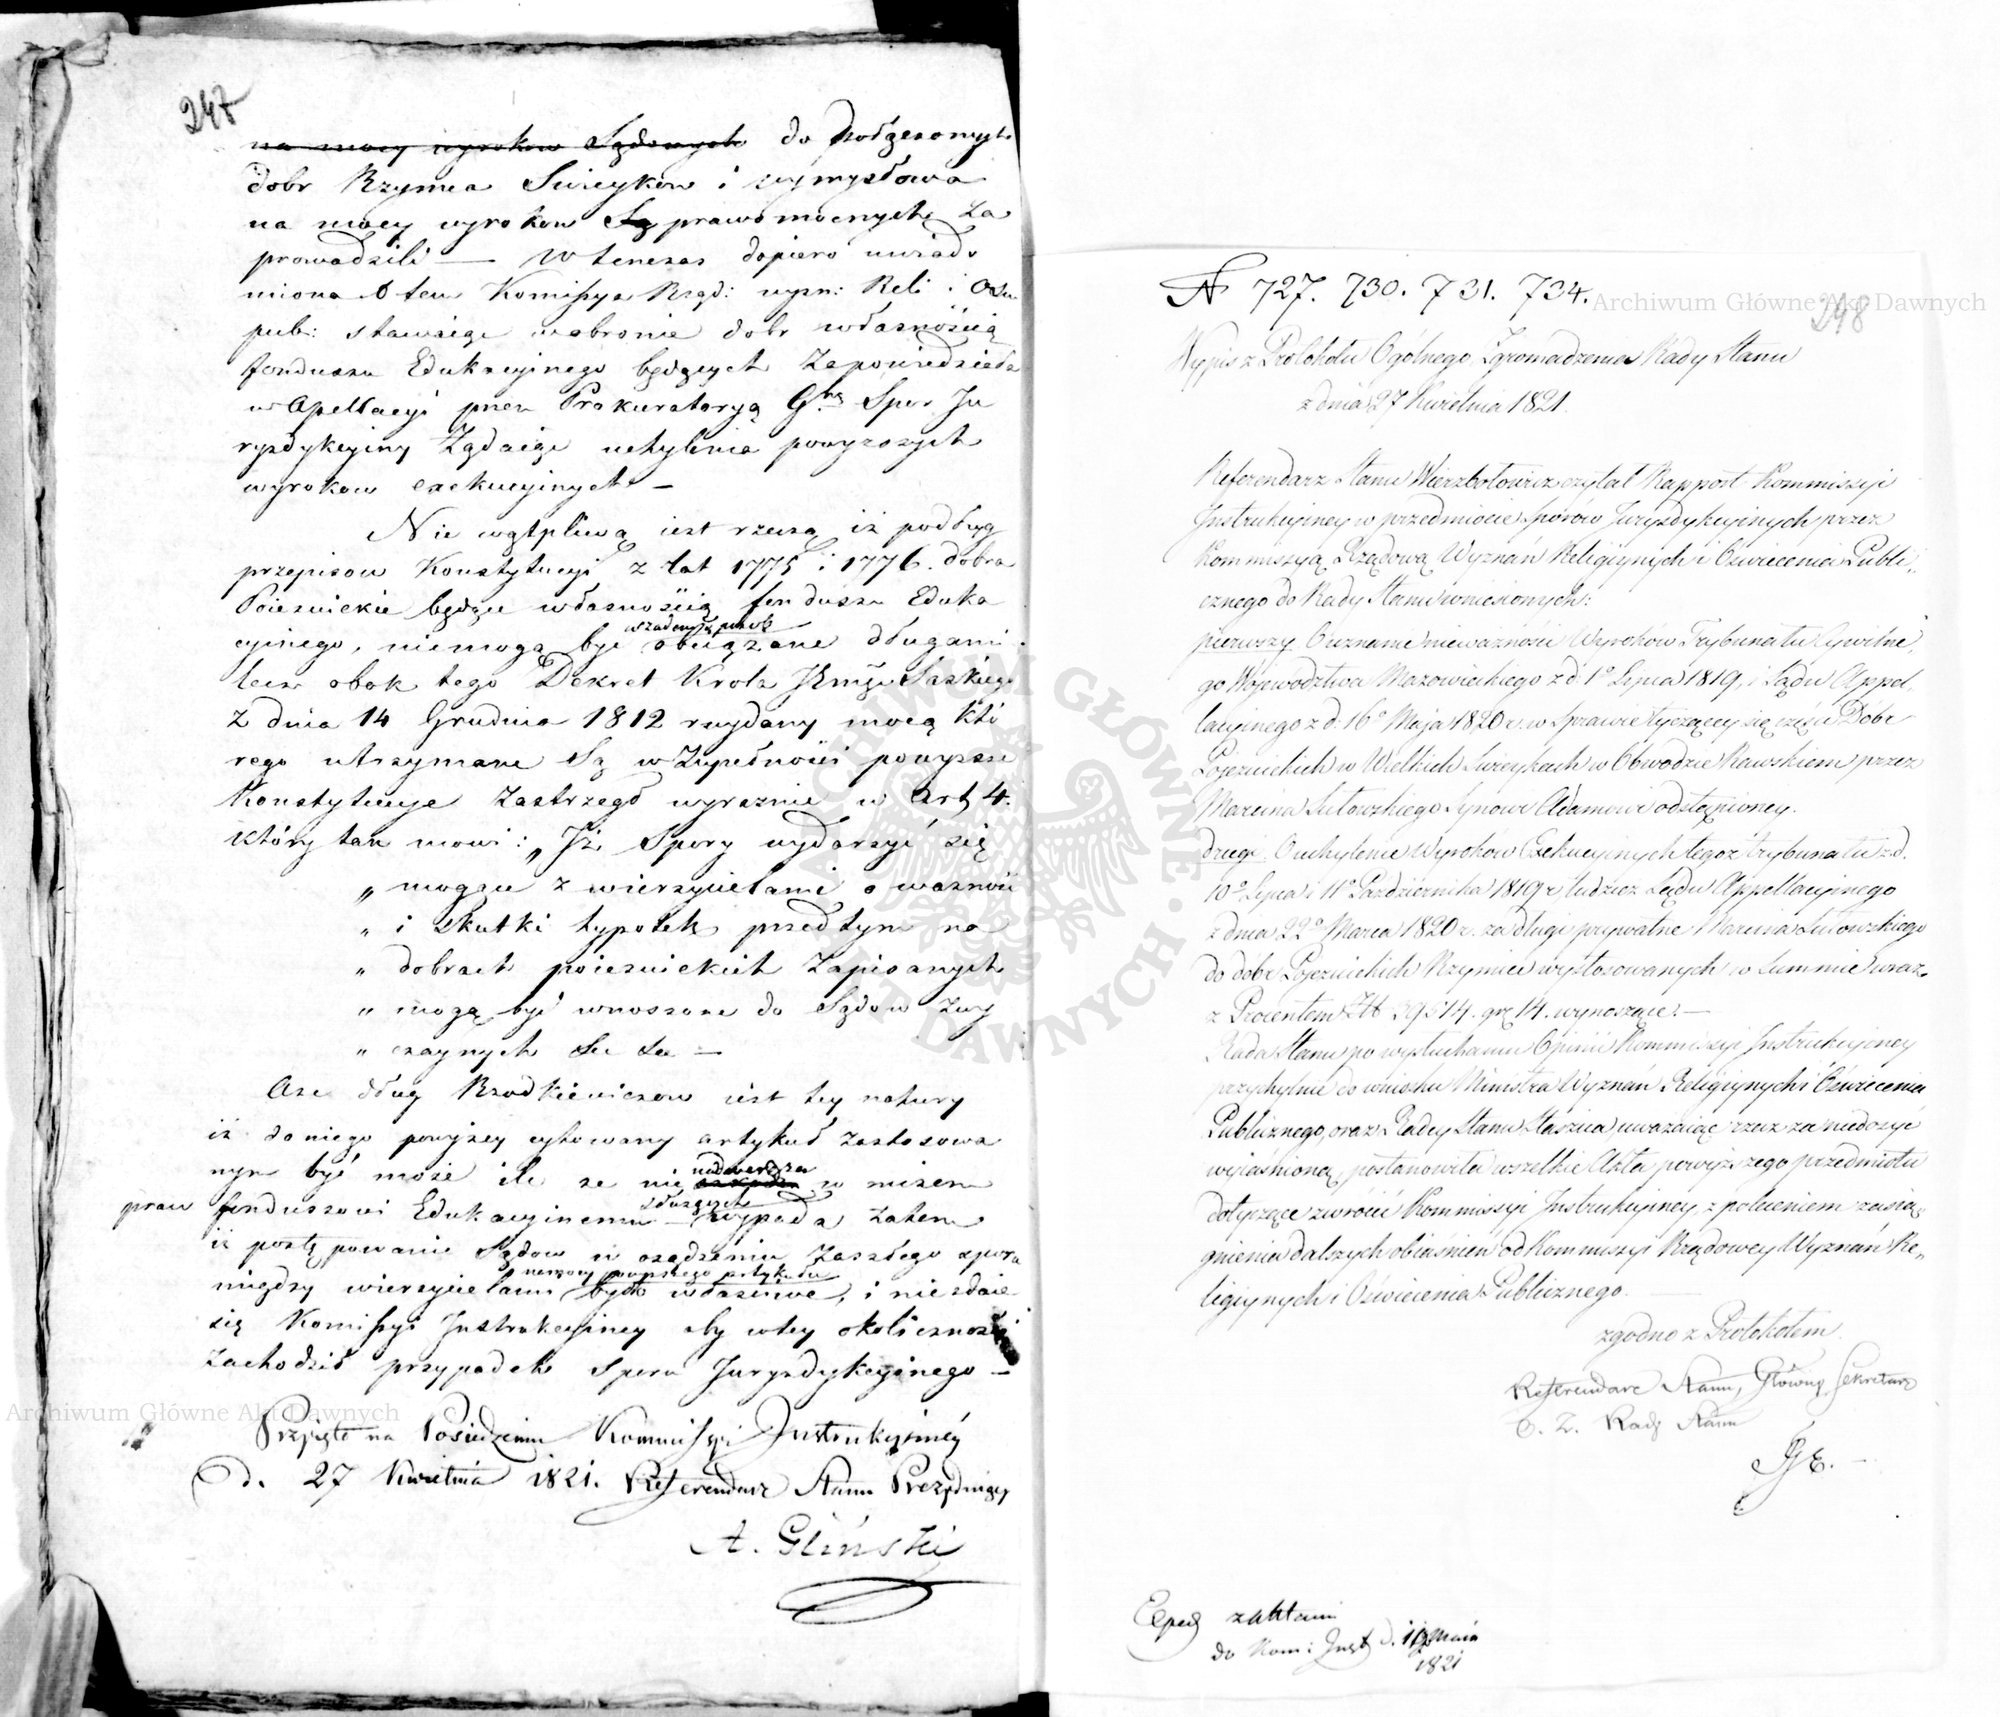 247
na mocy wyrokow Sądowych do połączonych
dobr Rzymca Swieykow i wymysłowa
na mocy wyrokow Są prawomocnych za
prowadzili — W tenczas dopiero uwiado
miona o tem Kommissya Rząd: wyzn: Reli: i Ośw
pub: stawaiąc w obronie dobr własnością
funduszu Edukacyinego będących zapowiedziała
w Apellacyi przez Prokuratoryą Glną Spor Ju
rysdykcyiny żądaiąc uchylenia powyższych
wyrokow exekucyinych —
Nie wątpliwą iest rzeczą iż podług
przepisow Konstytucyi z lat 1775 i 1776. dobra
Poiezuickie będąc własnością funduszu Eduka
w żadnym
cyinego, niemogą być obciążane długami.
lecz obok tego Dekret Krola Saskiego
z dnia 14 Grudnia 1812 wydany mocą któ
rego utrzymane są w Zupełności powyższe
Konstytucye zastrzegł wyraznie w art 4.
który tak mowi: „Iż Spory wydarzyć się
„ mogące z wierzycielami o wazność
„ i skutki hypotek przedtym na
„ dobrach poiezuickich zapisanych
„ mogą być wnoszone do Sądow zwy
„ czaynych &c &c —
Ze dług Brodkiewiczow iest tey natury
iż do niego powyżey cytowany artykuł zastosowa
nym być może ile ze nie w niczem
służących
praw funduszowi Edukacyinemu — wypada zatem
iż postępowanie Sądow w osądzeniu zaszłego sporu
na mocy powyższego artykułu
między wierzycielami było własciwe, i niezdaie
się Komissyi Instrukcyiney aby w tey okoliczności
zachodził przypadek sporu Jurysdykcyinego —
Przyięto na Posiedzeniu Kommissyi Instrukcyiney
d. 27 Kwietnia 1821. Referendarz Stanu Prezyduiący
A. Gliński
N 727. 730. 731. 734.
248
Wypis z Protokołu Ogólnego Zgromadzenia Rady Stanu
z dnia 27 Kwietnia 1821.
Referendarz Stanu Wierzbołowicz czytał Rapport Kommissyi
Instrukcyiney w przedmiocie Sporów Juryzdykcyinych przez
Kommissyą Rządową Wyznań Religiynych i Oświecenia Publi„
cznego do Rady Stanu wniesionych:
pierwszy O uznanie nieważności Wyroków Trybunału Cywilne„
go Województwa Mazowieckiego z d 1º Lipca 1819, i Sądu Appel„
lacyinego z d. 16º Maja 1820 r. w Sprawie tyczącey się części Dobr
Pojezuickich w Wielkich Swieykach w Obwodzie Rawskiem przez
Marcina Lutowskiego Synowi Adamowi odstąpioney.
drugi O uchylenie Wyroków Exekucyinych tegoż trybunału z d.
10º Lipca i 11º Października 1819 r tudzież Sądu Appellacyinego
z dnia 22º Marca 1820 r. za długi prywatne Marcina Lutowskiego
do dóbr Pojezuickich Rzymiec wyztosowanych w Summie wraz
z Procentem Zł 39514. gr. 14. wynoszące. —
Rada Stanu po wysłuchaniu Opinii Kommissyi Instrukcyiney
przychylnie do wniosku Ministra Wyznań Religiynych i Oświecenia
Publicznego, oraz Radcy Stanu Staszica, uważaiąc rzecz za niedosyć
wyiaśnioną, postanowiła wszelkie Akta powyższego przedmiotu
dotyczące zwrócić Kommissyi Instrukcyiney z poleceniem zasią„
gnienia dalszych obiaśnień od Kommissyi Rządowey Wyznań Re„
ligiynych i Oświecenia Publicznego.
zgodno z Protokołem
Referendarz Stanu, Główny Sekretarz
Rady Stanu
Exped z aktami
do Kom: Inst d. maia
1821
Archiwum Główne Akt Dawnych
Archiwum Główne Akt Dawnych
ARCHIWUM GŁÓWNE AKT DAWNYCH